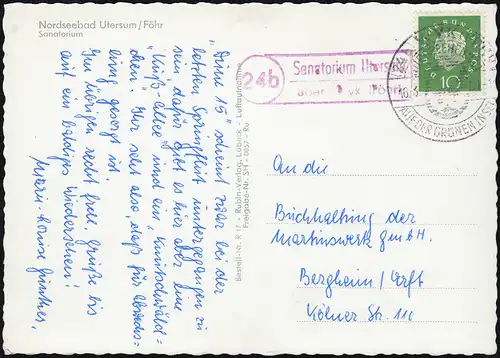 Nordseebad Utersum/Föhr
Sanatorium
"Düne 15" scheint zwar bei der
letzten Springflut untergegangen zu
sein, dafür gibt es hier aber eine
"Kuß-Allee" und ein "Knutschwäld-
chen". Ihr seht also, etwas für Abwechs-
lung ist gesorgt.
Im übrigen recht frdl. Grüße bis
auf ein baldiges Wiedersehen!
Marie-Louise
Bestell-Nr. R 17 - Rubin-Verlag, Lübeck - Luftaufnahme
Freigabe-Nr. SH - 0057 - Rv
24b
Sanatorium Utersum
über Wyk (Föhr)
DEUTSCHE BUNDESPOST
10
AUF DER GRÜNEN INSEL
An die
Buchhaltung der
Martinswerk GmbH.
Bergheim/Erft
Kölner Str. 110